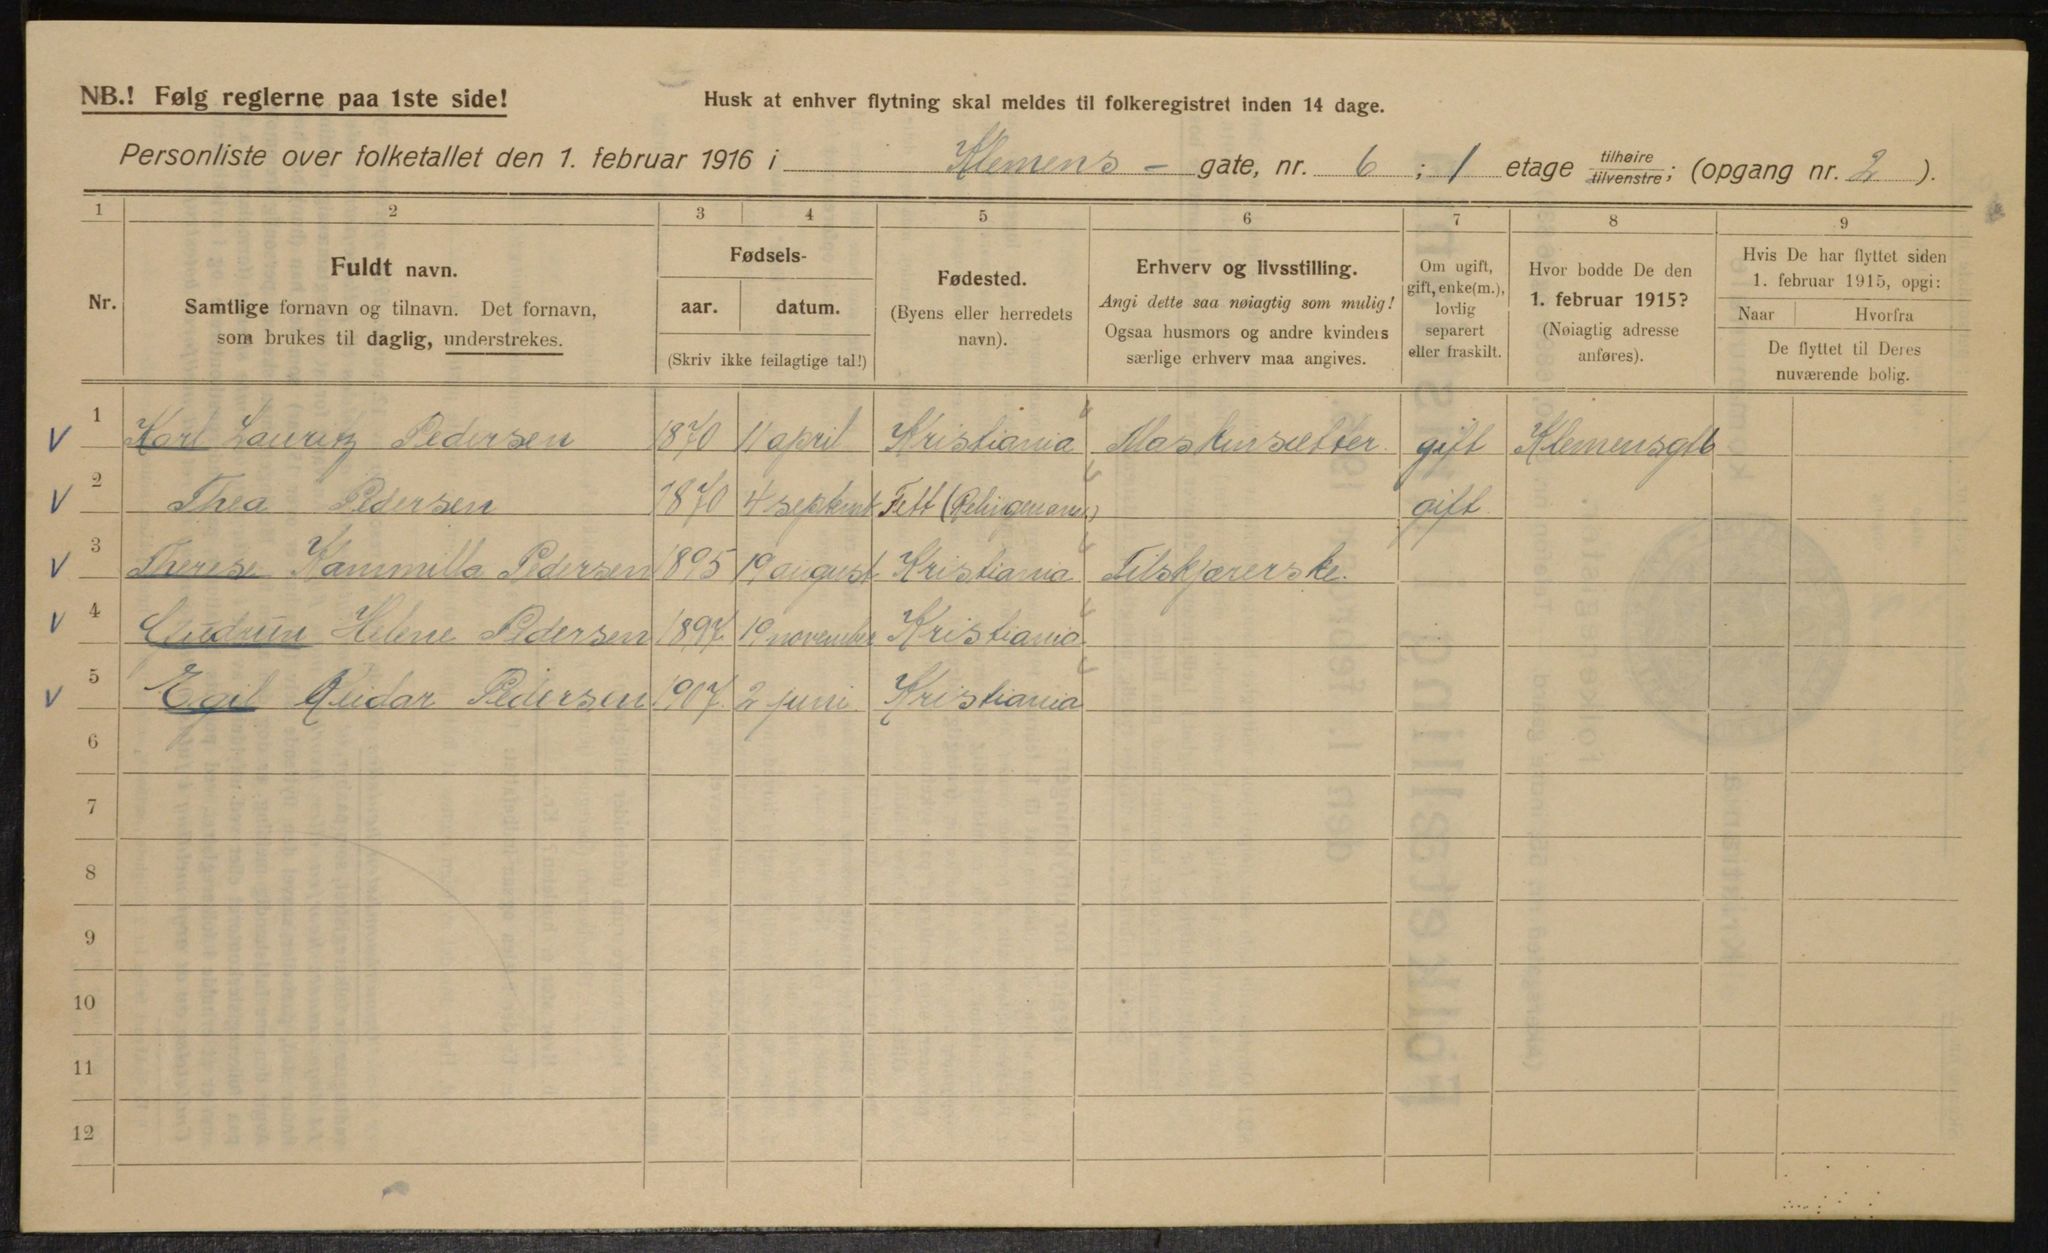 NB.! Følg reglerne paa 1ste side!
Husk at enhver flytning skal meldes til folkeregistret inden 14 dage.
Personliste over folketallet den 1. februar 1916 i Klemens - gate, nr. 6 ; 1 etage tilhøire tilvenstre; (opgang nr. 2 ).
1 2 3 4 5 6 7 8 9
Nr.
Fuldt navn.
Samtlige fornavn og tilnavn. Det fornavn,
som brukes til daglig, understrekes.
Fødsels-
aar. datum.
(Skriv ikke feilagtige tal!)
Fødested.
(Byens eller herredets
navn).
Erhverv og livsstilling.
Angi dette saa nøiagtig som mulig!
Ogsaa husmors og andre kvinders
særlige erhverv maa angives.
Om ugift,
gift, enke(m.),
lovlig
separert
eller fraskilt.
Hvor bodde De den
1. februar 1915?
(Nøiagtig adresse
anføres).
Hvis De har flyttet siden
1. februar 1915, opgi:
Naar Hvorfra
De flyttet til Deres
nuværende bolig.
V 1 Karl Lauritz Pedersen 1870 11 april Kristiania Maskinsætter gift Klemensgt 6
V 2 Thea Pedersen 1870 4 septemb Fett gift
V 3 Therese Kammilla Pedersen 1895 19 august Kristiania Tilskjærerske.
V 4 Gudrun Helene Pedersen 1897 19 november Kristiania
V 5 Egil Reidar Pedersen 1907 2 juni Kristiania
6
7
8
9
10
11
12